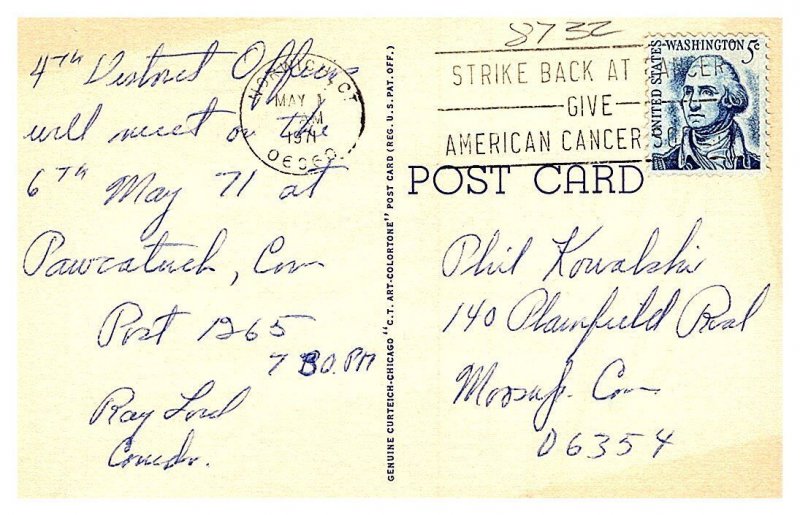 4TH District Officers
will meet on the
6TH May 71 at
Pawcatuck, Con
Post 1265
7 30. PM
Ray Lord
Comdr.
NORWICH, CT
MAY 1
PM
1971
06360
GENUINE CURTEICH-CHICAGO "C.T. ART-COLORTONE" POST CARD (REG. U.S. PAT. OFF.)
8732
STRIKE BACK AT CANCER
GIVE
AMERICAN CANCER
UNITED STATES
WASHINGTON 5c
POST CARD
Phil Kowalski
140 Plainfield Road
Moosup Con
06354